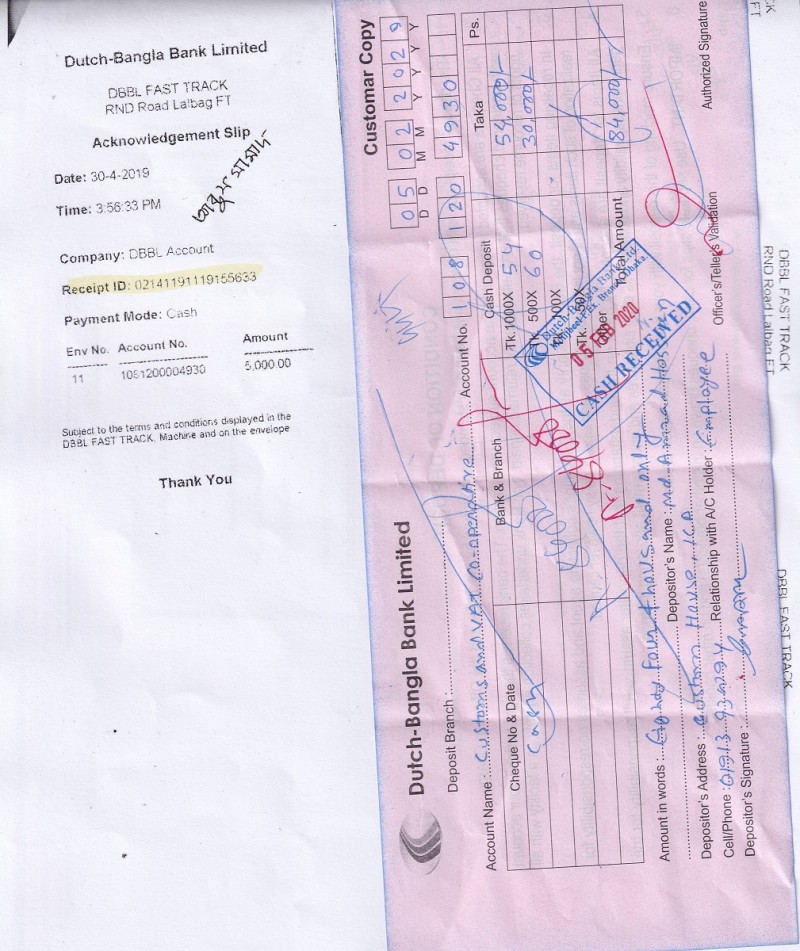 Dutch-Bangla Bank Limited
DBBL FAST TRACK
RND Road Lalbag FT
Acknowledgement Slip
Date: 30-4-2019
Time: 3:56:33 PM
Company: DBBL Account
Receipt ID: 02141191119155633
Payment Mode: Cash
Env No. Account No. Amount
11 1081200004930 5,000.00
Subject to the terms and conditions displayed in the
DBBL FAST TRACK, Machine and on the envelope
Thank You
Dutch-Bangla Bank Limited
Customar Copy
Deposit Branch :
05 02 2029
D D M M Y Y Y Y
Account Name : Customs and VAT Co-operative
Account No. 108 120 4930
Cheque No & Date Bank & Branch Cash Deposit Taka Ps.
Cash Tk. 1000X 54 54,000/-
Tk. 500X 60 30,000/-
Tk. 100X
Tk. 50X
Other
Total Amount 84,000/-
Dutch-Bangla Bank Ltd.
05 FEB 2020
CASH RECEIVED
Amount in words : thousand only
Depositor's Name : Md Amzad Hossain
Depositor's Address : Custom House, ICD
Cell/Phone : Relationship with A/C Holder : Employee
Depositor's Signature :
Officer's/Teller's Validation
Authorized Signature
DBBL FAST TRACK
RND Road Lalbag FT
DBBL FAST TRACK